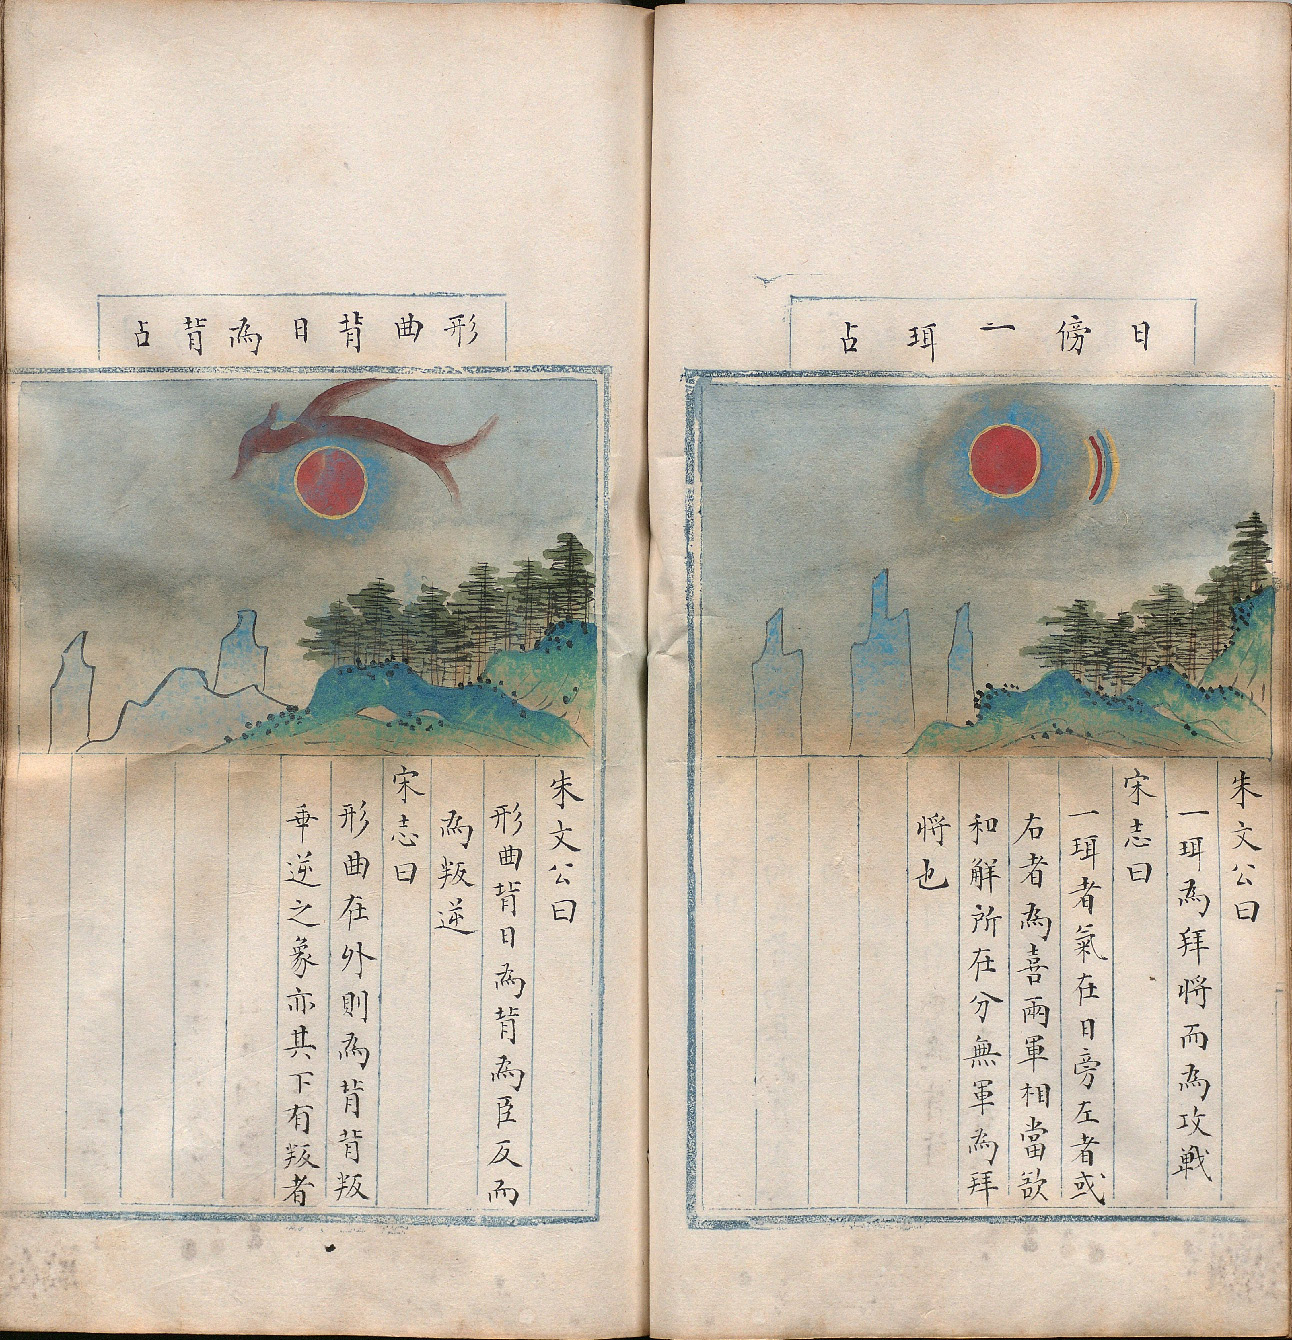 日傍一珥占
朱文公曰
一珥為拜将而為攻戦
宋志曰
一珥者氣在日旁左者或
右者為喜兩軍相當欲
和解所在分無軍為拜
将也
形曲背日為背占
朱文公曰
形曲背日為背為臣反而
為叛逆
宋志曰
形曲在外則為背背叛
乖逆之象亦其下有叛者